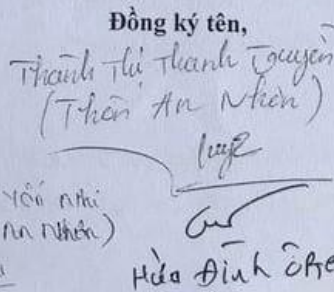 Đồng ký tên,
Thành Thị Thanh Truyền
(Thôn An Nhơn)
Yến Nhi
An Nhơn)
Hứa Đình